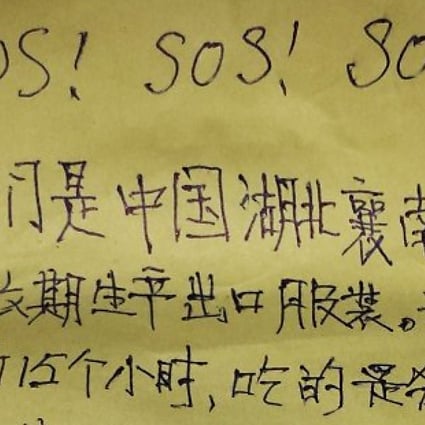 OS! SOS! SO
们是中国湖北襄南
期生产出口服装。
15个小时,吃的是